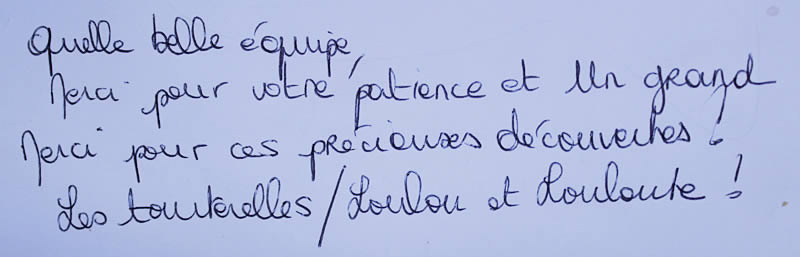 Quelle belle équipe,
Merci pour votre patience et Un grand
Merci pour ces précieuses découvertes !
Les tourterelles / Loulou et Louloute !